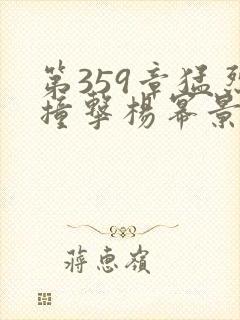 第359章猛烈
撞擊楊冪景
蔣惠嶺